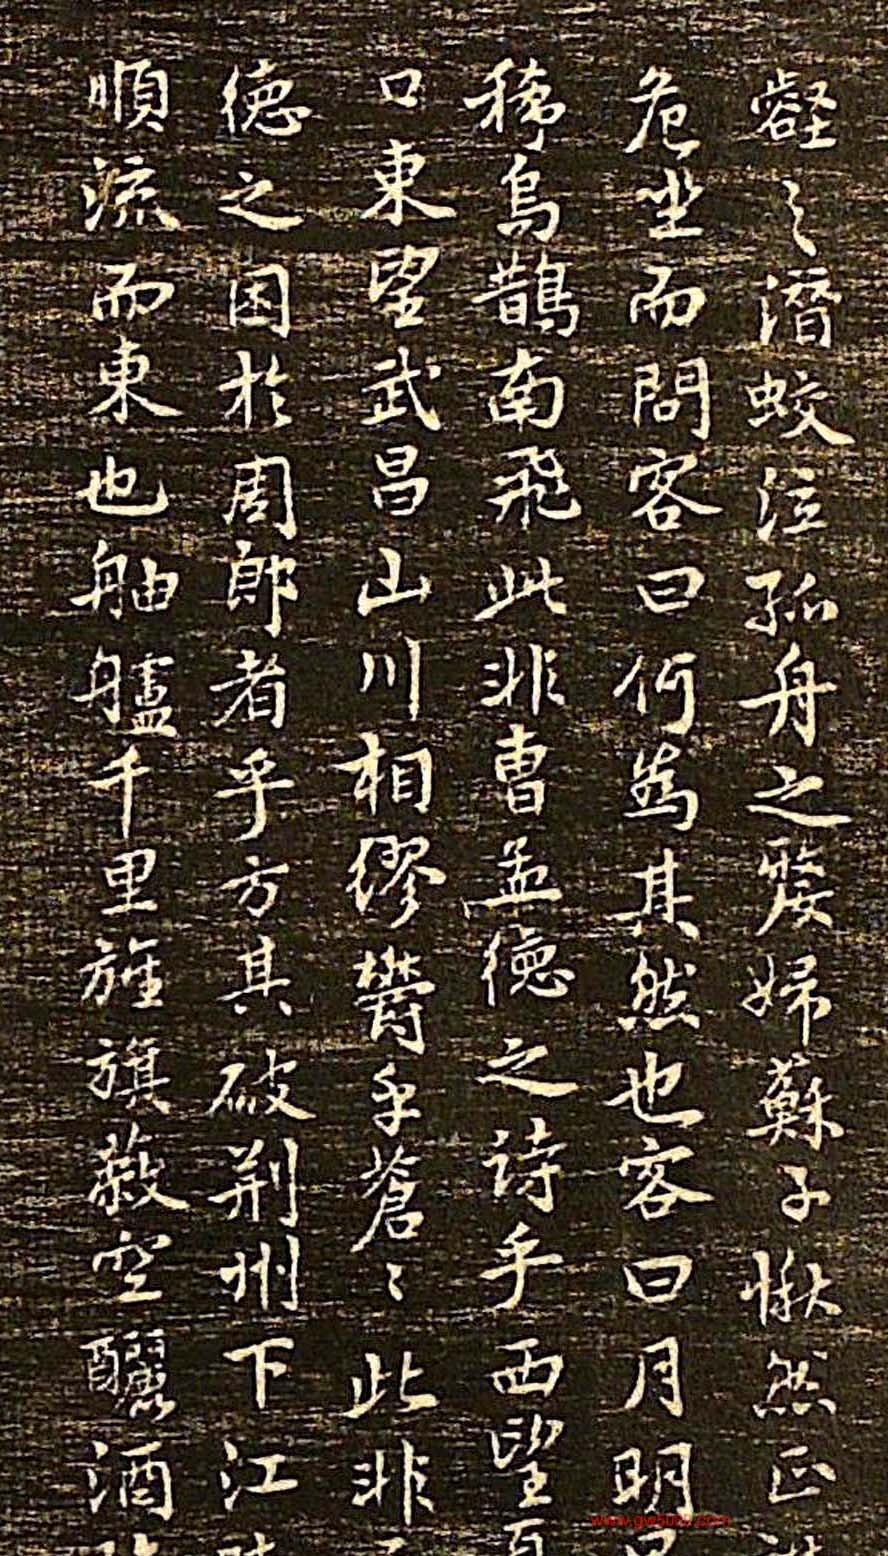 壑之潛蛟泣孤舟之嫠婦蘇子愀然正
危坐而問客曰何為其然也客曰月明
稀烏鵲南飛此非曹孟德之詩乎西望夏
口東望武昌山川相繆鬱乎蒼〻此非
德之困於周郎者乎方其破荊州下江
順流而東也舳艫千里旌旗蔽空釃酒